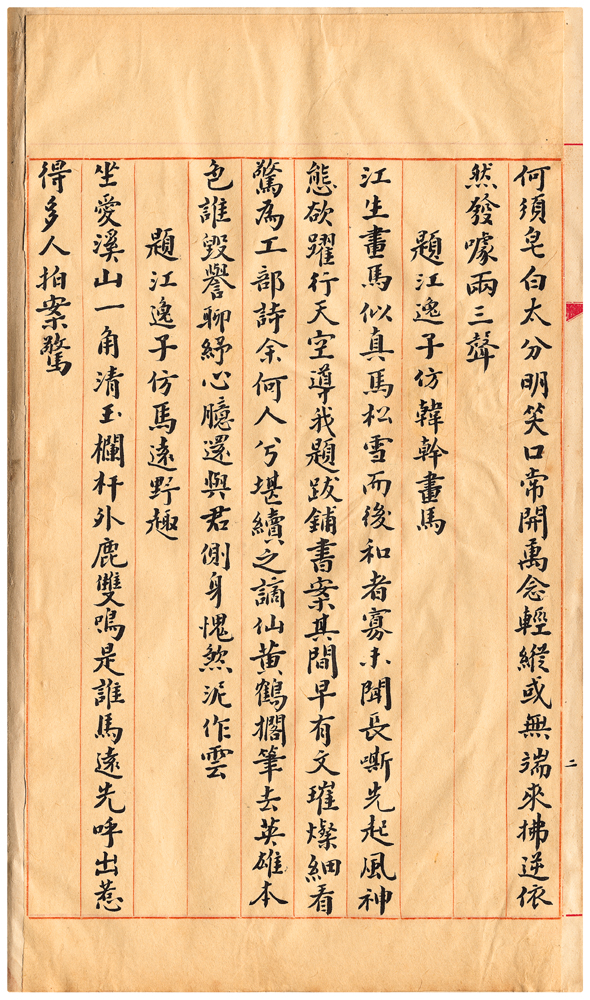 何須皂白太分明笑口常開萬念輕縱或無端來拂逆依
然發噱兩三聲
題江逸子仿韓幹畫馬
江生畫馬似真馬松雪而後和者寡未聞長嘶先起風神
態欲躍行天空導我題跋鋪書案其間早有文璀燦細看
驚為工部詩余何人兮堪續之謫仙黃鶴擱筆去英雄本
色誰毀譽聊紓心臆還與君側身愧煞泥作雲
題江逸子仿馬遠野趣
坐愛溪山一角清玉欄杆外鹿雙鳴是誰馬遠先呼出惹
得多人拍案驚
二